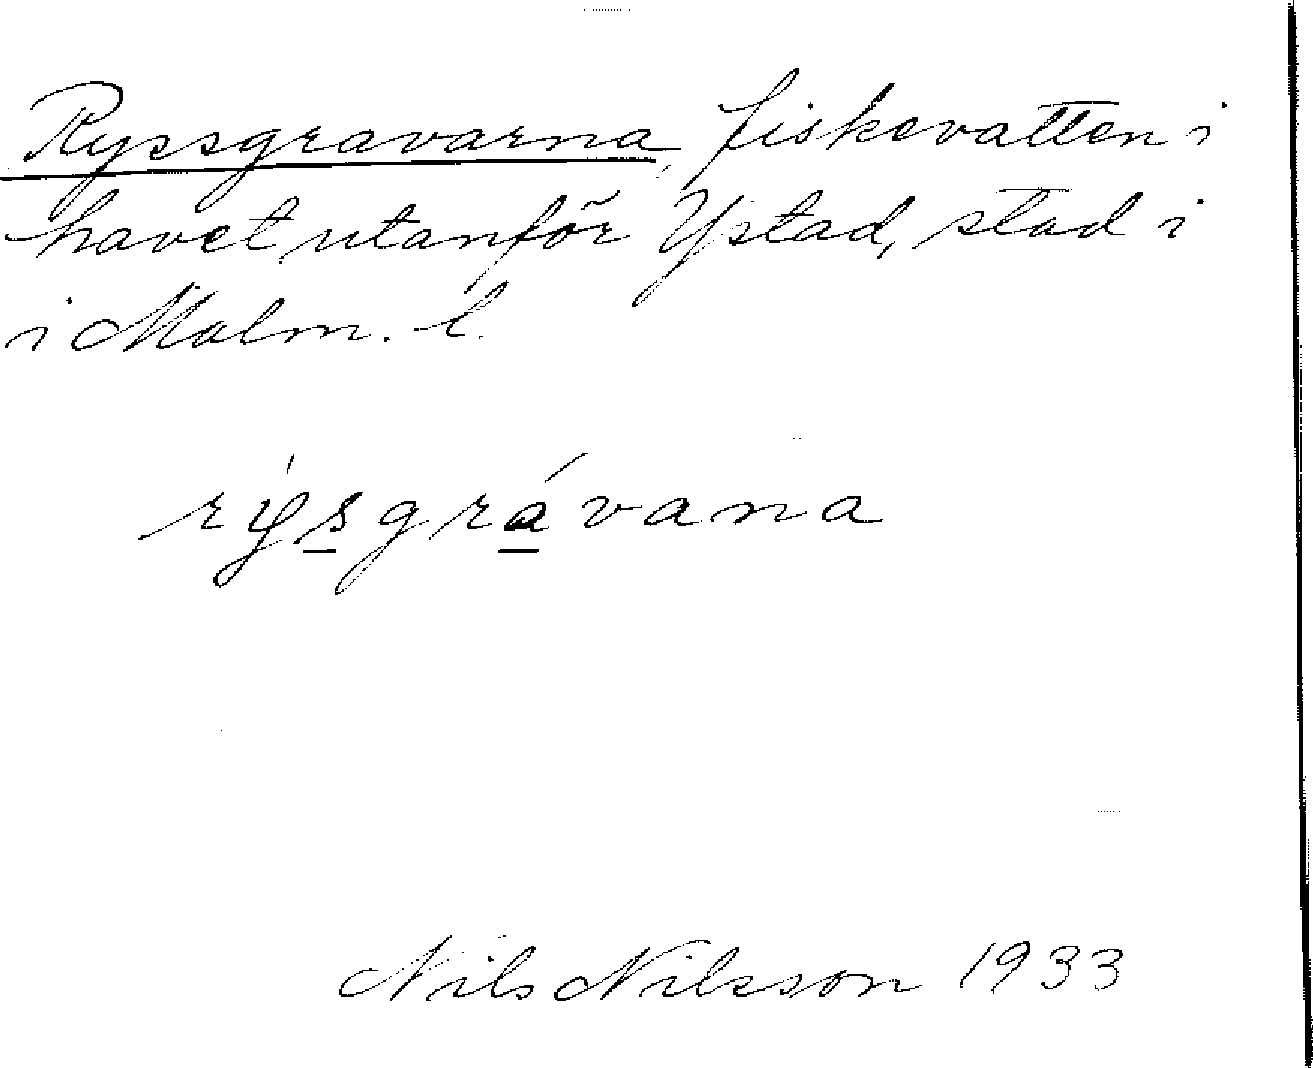 Ryssgravarna, fiskevatten i
havet utanför Ystad, stad i
i Malm. l.
rýs̲grá̲vana
Nils Nilsson 1933